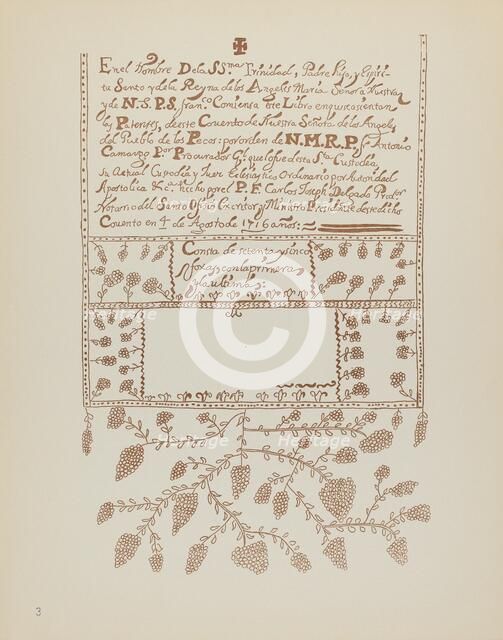 En el Nombre De la SS.ma Trinidad, Padre Hijo, y Espiri-
tu Santo y de la Reyna de los Angeles Maria Señora Nuestra
y de N. S. P. S. Fran.co Comiensa este Libro en que se asientan
las Patentes, de este Conento de Nuestra Señora de los Angeles
del Pueblo de los Pecos: por orden de N. M. R. P. Fr. Antonio
Camargo P.or Procurador G.l que lo fue de esta S.ta Custodia
Su Actual Custodio y Juez Eclesiastico Ordinario por Autoridad
Apostolica &.a hecho por el P. F. Carlos Joseph Delgado
Notario del Santo Oficio Escritor y Ministro Precidente de este dicho
Conento en 4 de Agosto de 1716 años:
Consta de setenta y sinco
fojas con la primera
y la ultima:
heritage
Heritage
Images
3